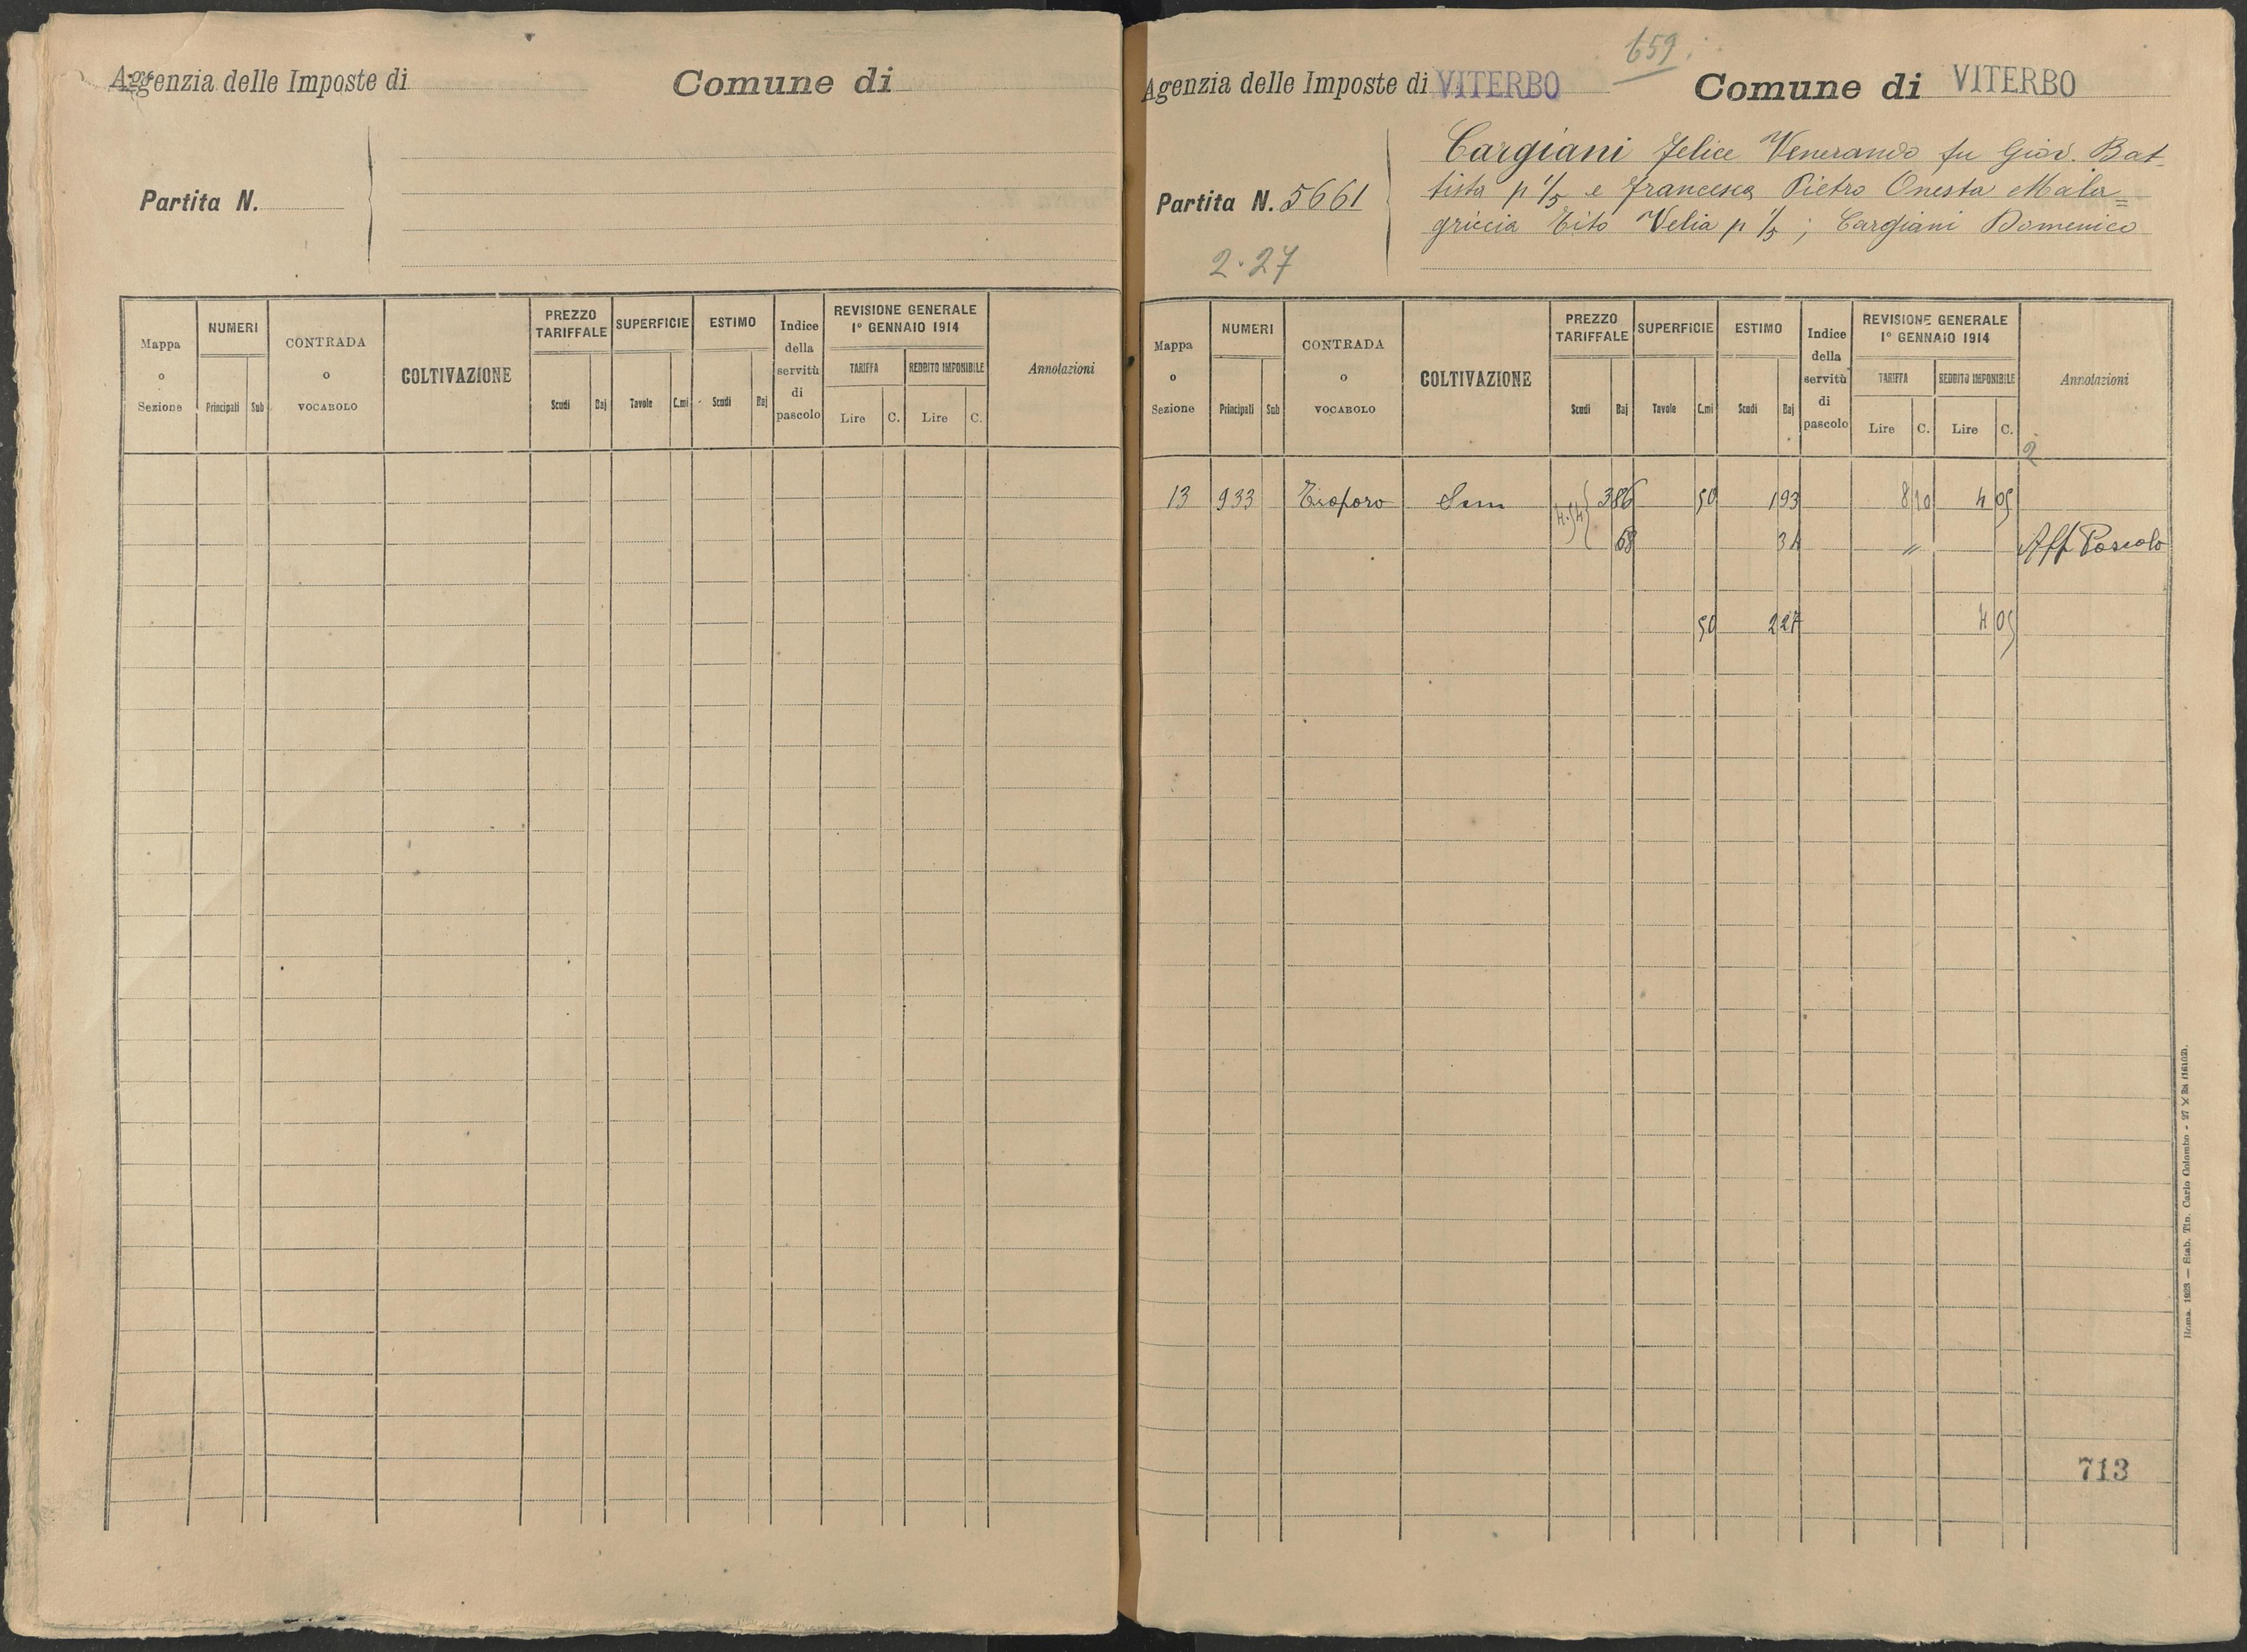 Agenzia delle Imposte di Comune di
Partita N.
Mappa o Sezione NUMERI Principali Sub CONTRADA o VOCABOLO COLTIVAZIONE PREZZO TARIFFALE Scudi Baj SUPERFICIE Tavole C.mi ESTIMO Scudi Baj Indice della servitù di pascolo REVISIONE GENERALE 1° GENNAIO 1914 TARIFFA Lire C. REDDITO IMPONIBILE Lire C. Annotazioni
659
Agenzia delle Imposte di VITERBO Comune di VITERBO
Cargiani Felice Venerando fu Giov. Bat-
Partita N. 5661
tista p 1/5 e Francesca Pietro Onesta Mala=
griccia Tito Velia p 1/5 ; Cargiani Domenico
2.27
Mappa o Sezione NUMERI Principali Sub CONTRADA o VOCABOLO COLTIVAZIONE PREZZO TARIFFALE Scudi Baj SUPERFICIE Tavole C.mi ESTIMO Scudi Baj Indice della servitù di pascolo REVISIONE GENERALE 1° GENNAIO 1914 TARIFFA Lire C. REDDITO IMPONIBILE Lire C. Annotazioni
2
13 933 Sem 4.54 3 86 50 1 93 8 10 4 05
68 34 " Aff Pascolo
50 2 27 4 05
713
Roma, 1923 — Stab. Tip. Carlo Colombo -